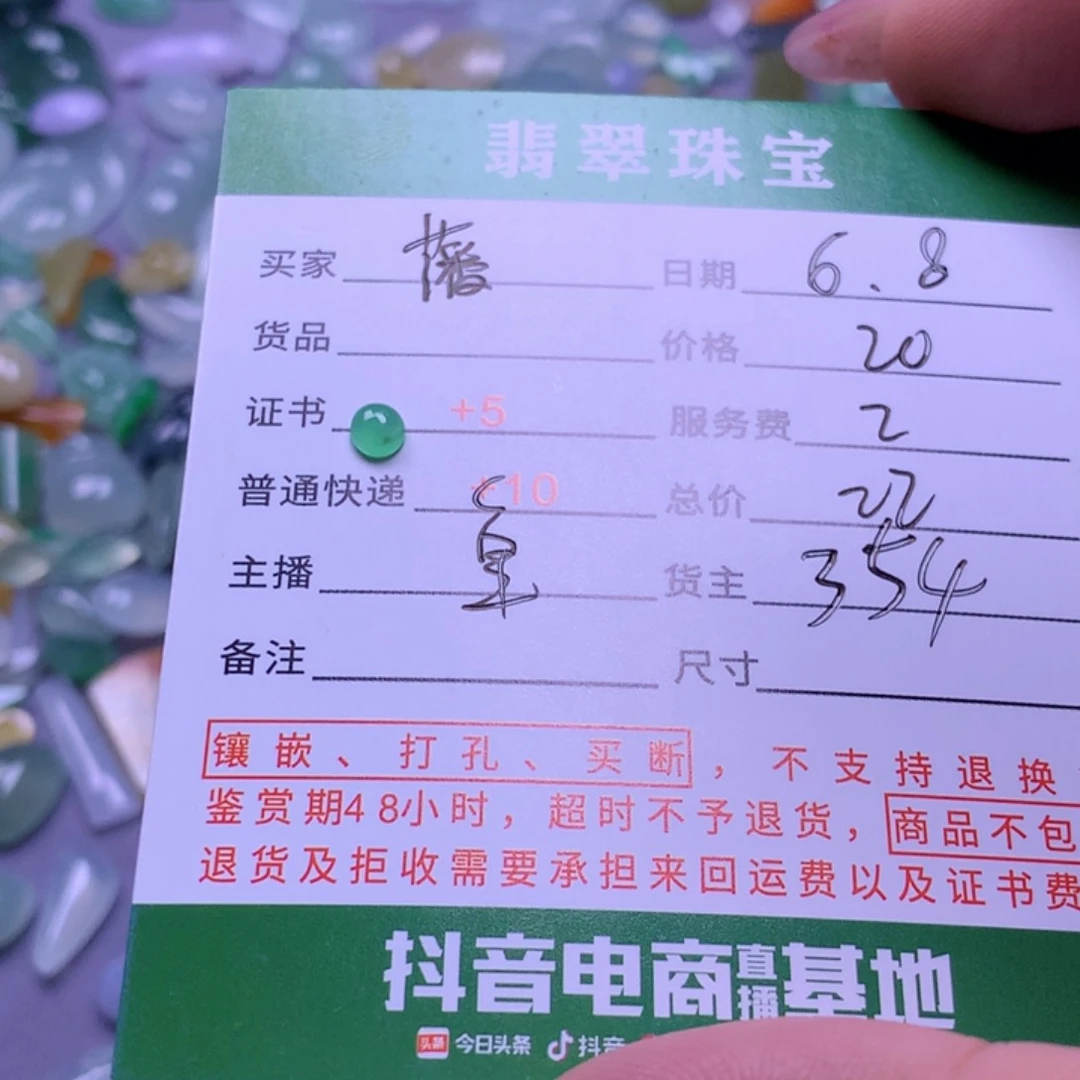 翡翠珠宝
买家 日期 6.8
货品 价格 20
证书 +5 服务费 2
普通快递 +10 总价 22
主播 货主 354
备注 尺寸
镶嵌、打孔、买断，不支持退换
鉴赏期48小时，超时不予退货，商品不包
退货及拒收需要承担来回运费以及证书费
抖音电商直播基地
头条 今日头条 抖音